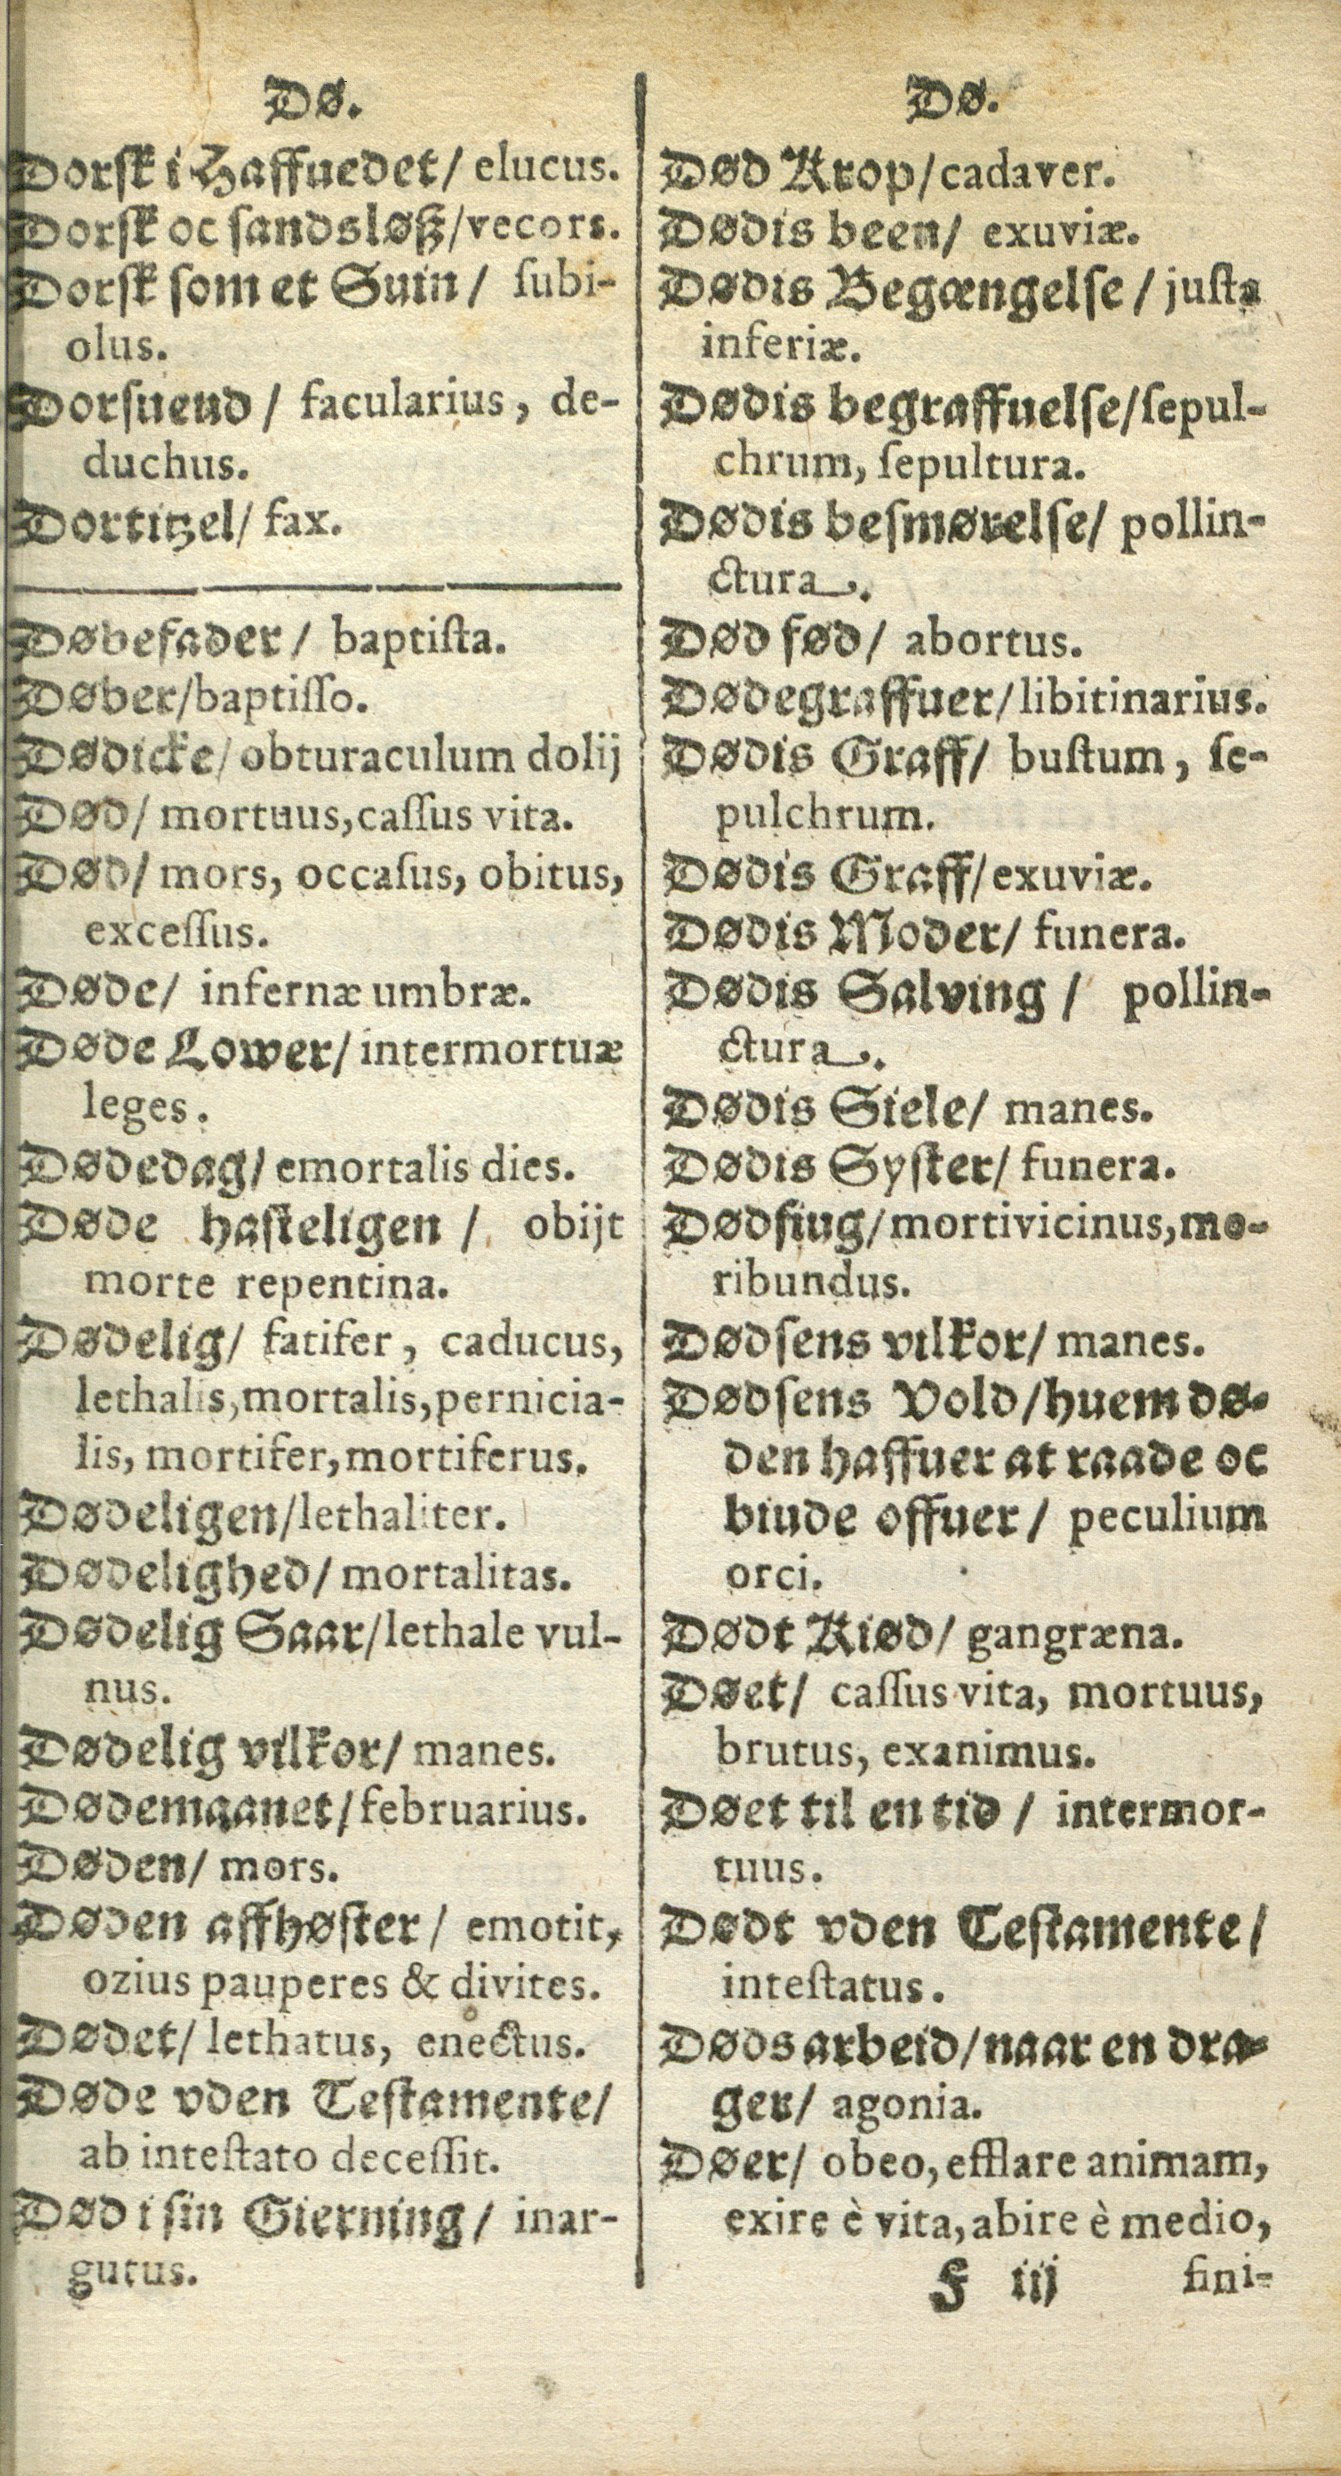 Dø.
Dorſk i Haffuedet/ elucus.
Dorſk oc ſandsløß/vecors.
Dorſk som et Suin/ ſubi-
olus.
Dorſuend/ facularius, de-
duchus.
Dortitzel/ fax.
Døbefader/ baptiſta.
Døber/baptiſſo.
Dødicke/ obturaculum dolij
Død/ mortuus,caſſus vita.
Død/ mors, occaſus, obitus,
exceſſus.
Døde/ infernæ umbræ.
Døde Lower/ intermortuæ
leges.
Dødedag/ emortalis dies.
Døde haſteligen/ obijt
morte repentina.
Dødelig/ fatifer, caducus,
lethalis,mortalis,pernicia-
lis, mortifer,mortiferus.
Dødeligen/lethaliter.
Dødelighed/ mortalitas.
Dødelig Saar/lethale vul-
nus.
Dødelig vilkor/ manes.
Dødemaanet/februarius.
Døden/ mors.
Døden affhøſter/ emotit,
ozius pauperes & divites.
Dødet/ lethatus, enectus.
Døde vden Teſtamente/
ab inteſtato deceſſit.
Død i ſin Gierning/ inar-
gutus.
Dø.
Død Krop/cadaver.
Dødis been/ exuviæ.
Dødis Begængelſe/ juſta
inferiæ.
Dødis begraffuelſe/ſepul-
chrum, ſepultura.
Dødis beſmørelſe/ pollin-
ctura.
Død fød/ abortus.
Dødegraffuer/libitinarius.
Dødis Graff/ buſtum, ſe-
pulchrum.
Dødis Graff/exuviæ.
Dødis Moder/ funera.
Dødis Salving/ pollin-
ctura.
Dødis Siele/ manes.
Dødis Syſter/ funera.
Dødſiug/mortivicinus,mo-
ribundus.
Dødſens vilkor/ manes.
Dødſens Vold/huem dø-
den haffuer at raade oc
biude offuer/ peculium
orci.
Dødt Kiød/ gangræna.
Døet/ caſſus vita, mortuus,
brutus, exanimus.
Døet til en tid/ intermor-
tuus.
Dødt vden Teſtamente/
inteſtatus.
Døds arbeid/naar en dra-
ger/ agonia.
Døer/ obeo,efflare animam,
exire è vita,abire è medio,
F iij fini-